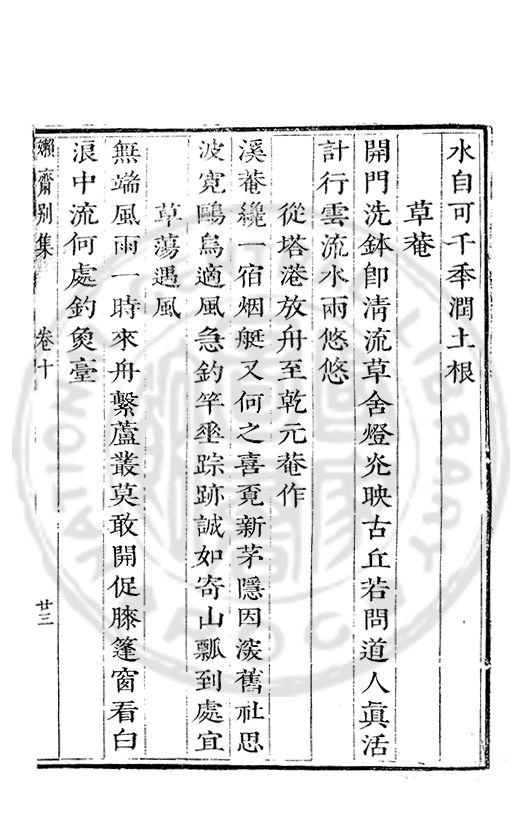 水自可千秊潤土根
草菴
開門洗鉢卽清流草舍燈光映古丘若問道人眞活
計行雲流水兩悠悠
從塔港放舟至乾元菴作
溪菴纔一宿烟艇又何之喜覓新茅隱因淡舊社思
波寛鷗鳥適風急釣竿埀踪跡誠如寄山瓢到處宜
草蕩遇風
無端風雨一時來舟繫蘆叢莫敢開促膝篷窗看白
浪中流何處釣魚臺
嬾齋别集 卷十 廿三